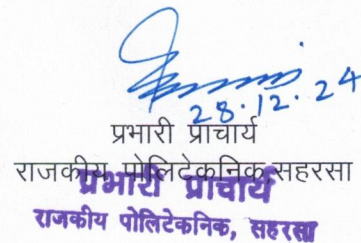 28.12.24
प्रभारी प्राचार्य
राजकीय पोलिटेकनिक सहरसा
प्रभारी प्राचार्य
राजकीय पोलिटेकनिक, सहरसा